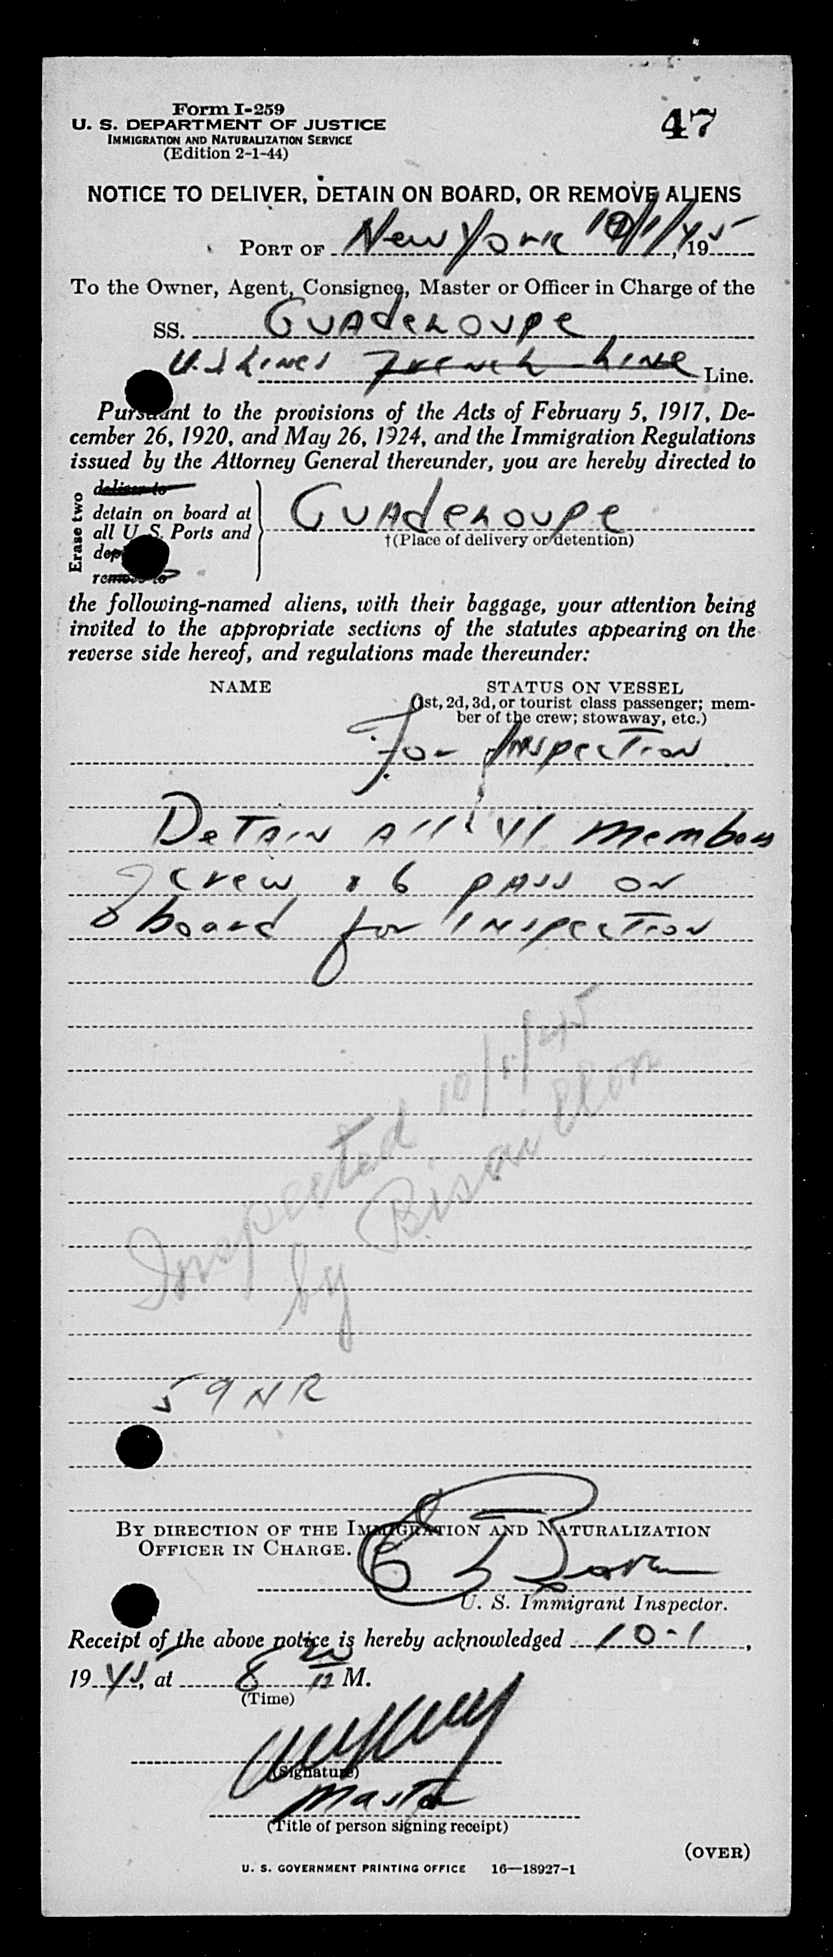 Form I-259
47
U. S. DEPARTMENT OF JUSTICE
IMMIGRATION AND NATURALIZATION SERVICE
(Edition 2-1-44)
NOTICE TO DELIVER, DETAIN ON BOARD, OR REMOVE ALIENS
PORT OF New York 10/1/45, 19
To the Owner, Agent, Consignee, Master or Officer in Charge of the
SS. GUADELOUPE
U.S Lines French Line Line.
Pursuant to the provisions of the Acts of February 5, 1917, De-
cember 26, 1920, and May 26, 1924, and the Immigration Regulations
issued by the Attorney General thereunder, you are hereby directed to
Erase two
deliver to
detain on board at
all U. S. Ports and
GUADELOUPE
†(Place of delivery or detention)
remove to
the following-named aliens, with their baggage, your attention being
invited to the appropriate sections of the statutes appearing on the
reverse side hereof, and regulations made thereunder:
NAME
STATUS ON VESSEL
(1st, 2d, 3d, or tourist class passenger; mem-
ber of the crew; stowaway, etc.)
For Inspection
Detain All 41 members
crew & 6 pass on
board for Inspection
Inspected 10/1/45
by Bisaillon
59 NR
BY DIRECTION OF THE IMMIGRATION AND NATURALIZATION
OFFICER IN CHARGE.
U. S. Immigrant Inspector.
Receipt of the above notice is hereby acknowledged 10-1,
1945, at 8 20 M.
(Time)
(Signature)
Master
(Title of person signing receipt)
(OVER)
U. S. GOVERNMENT PRINTING OFFICE 16—18927-1